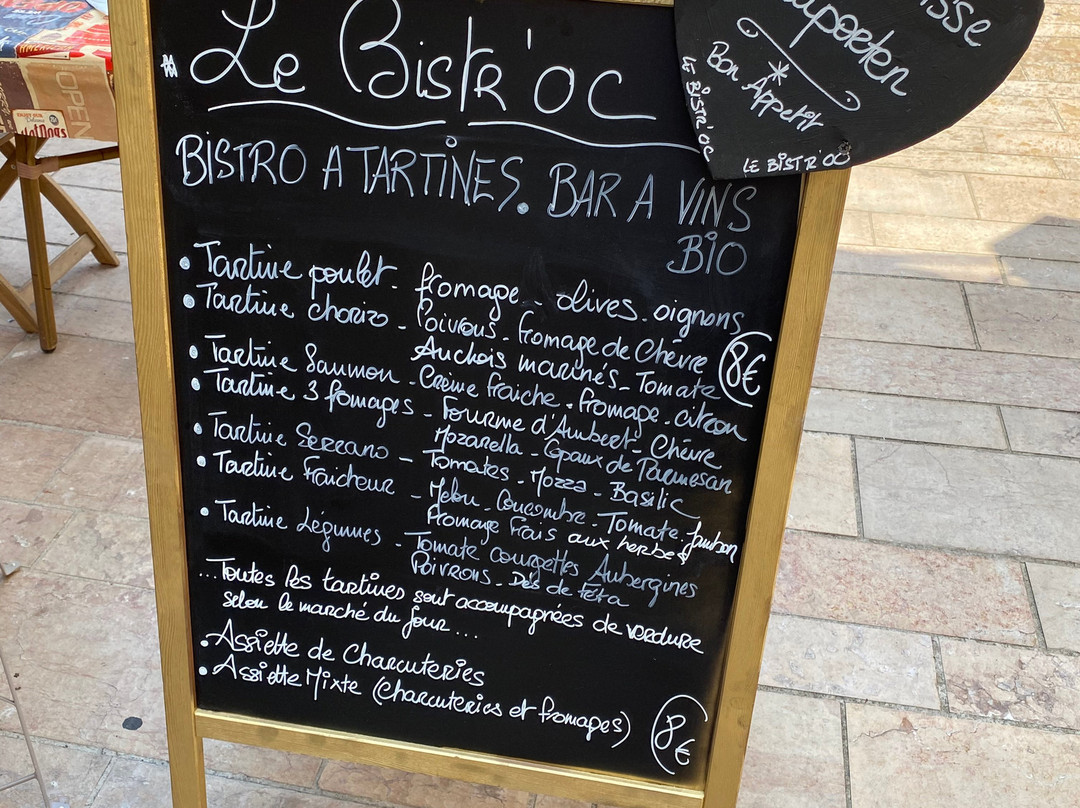 Le Bistr'oc
BISTRO A TARTINES. BAR A VINS
BIO
• Tartine poulet - fromage - olives. oignons
• Tartine chorizo - Poivrons. fromage de Chèvre
Anchois marinés - Tomate
8€
• Tartine Saumon - Crème fraiche. fromage. citron
• Tartine 3 fromages - Fourme d'Ambert - Chèvre
Mozarella - Copaux de Parmesan
• Tartine Serrano - Tomates. Mozza - Basilic
• Tartine Fraicheur - Melon. Concombre. Tomate. Jambon
Fromage Frais aux herbes
• Tartine Légumes - Tomate courgettes Aubergines
Poivrons. Dés de Féta
...Toutes les tartines sont accompagnées de verdure
selon le marché du jour...
• Assiette de Charcuteries
• Assiette Mixte (charcuteries et fromages)
8€
Bon Appetit
LE BISTR'OC
LE BISTR'OC
OPEN
HotDogs